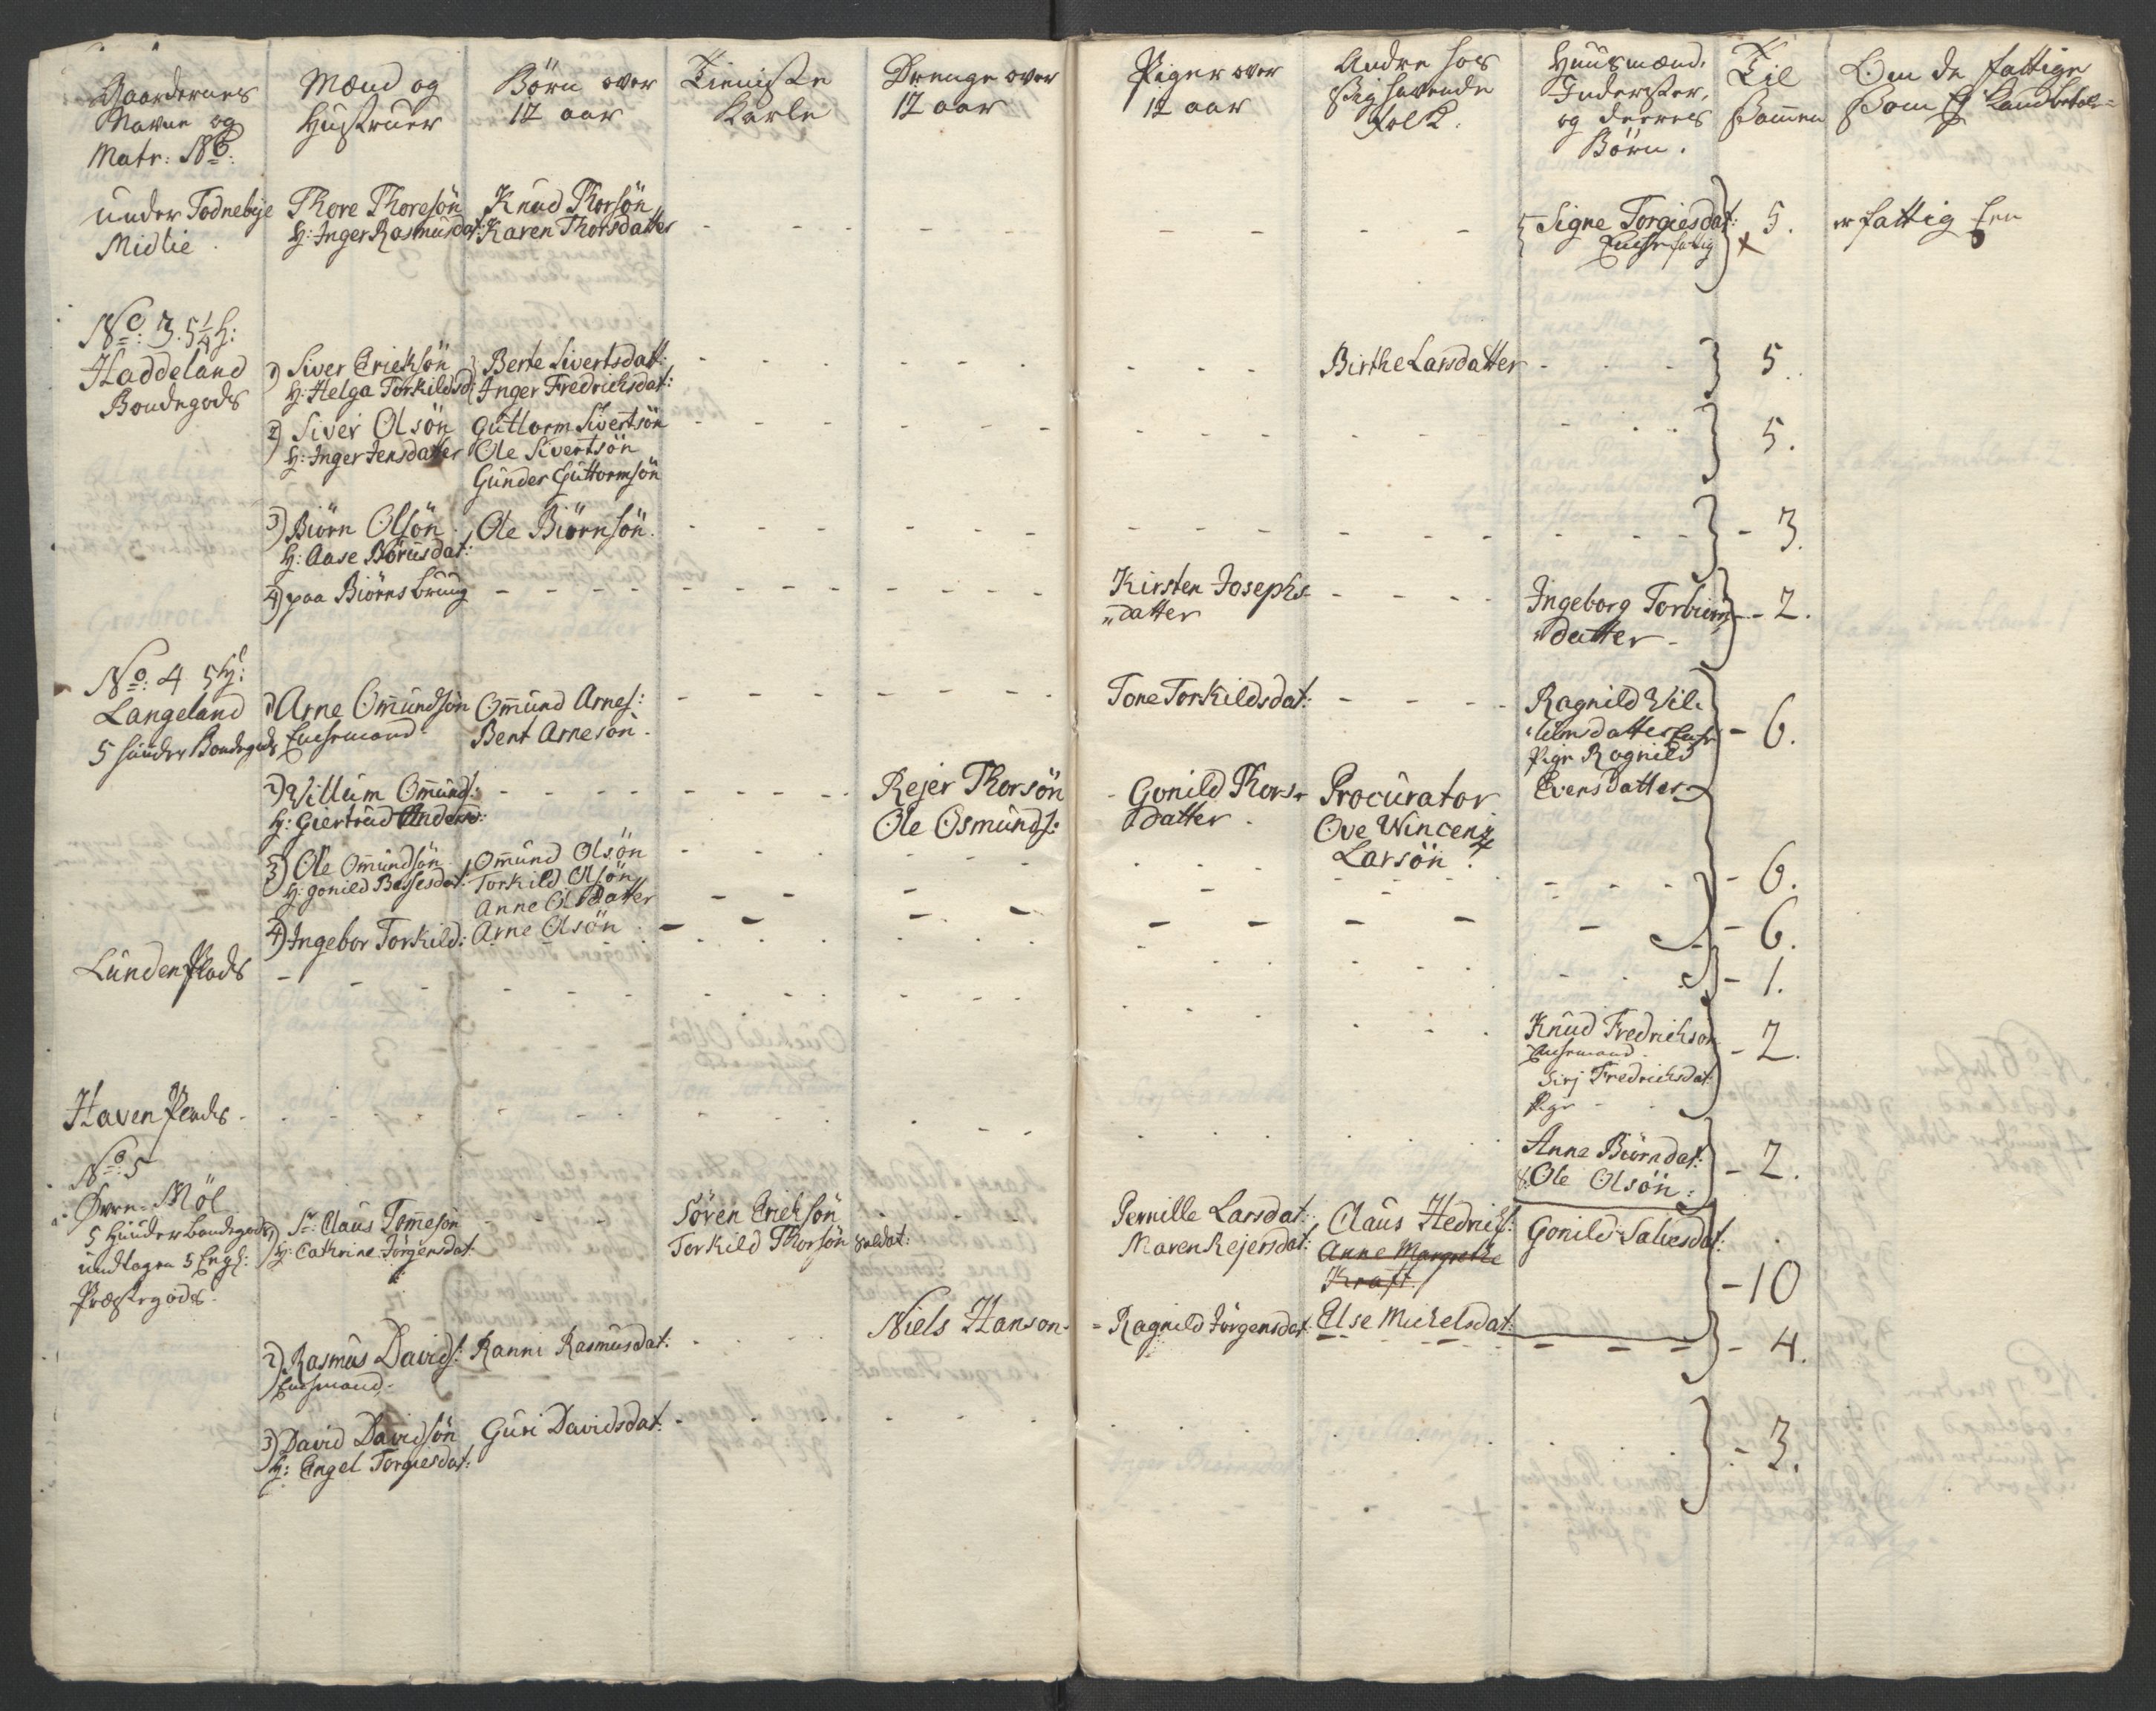 Gaardernes
Navne og
Matr: No:
Mænd og
Hustruer
Børn over
12 aar
Tieniste
Karle
Drenge over
12 aar
Piger over
12 aar
Andre hos
sig havende
Folk.
Huusmænd,
Inderster,
og derres
Børn.
Til
Sammen
Om de fattige
Som Ej kand betale
under Todneby
Midlie
Thore Thoresön
H: Inger Rasmusdat:
Knud Thorsön
Karen Thorsdatter
Signe Torgiesdat:
Enche fattig
5.
er fattig Een
No: 3. 5 1/4 h:
Haddeland
Bondegods
1) Siver Erichsön
H: Helga Torkildsd:
Berte Sivertsdatt:
Inger Fredrichsdat:
Birthe Larsdatter
5.
2) Siver Olsön
H: Inger Jensdatter
Guttorm Sivertsön
Ole Sivertsön
Gunder Guttormsön
5.
3) Biörn Olsön
H: Aase Börusdat:
Ole Biörnsön.
3.
4) paa Biörns bruug
Kirsten Josephs
datter
Ingeborg Torbiörn
datter
2.
No: 4 5 h:
Langeland
5 hunder Bondegods
1) Arne Ommundsön
Enchemand
Ommund Arnes:
Bent Arnesön.
Tone Torkildsdat:
Ragnild Wil
lumsdatter Enche
Pige Ragnild
Evensdatter
6.
2) Willum Ommunds:
H: Giertrud Andersd:
Rejer Thorsön
Ole Osmunds:
Gonild Thors
datter.
Procurator
Ove Wincentz
Larsön.
6.
3) Ole Ommundsön
H: Gonild Bessesdat:
Ommund Olsön
Torkild Olsön
Anne Olsdatter
Arne Olsön
6.
4) Ingebor Torkild:
1.
Lunden Plads
Knud Fredrichsön
Enchemand.
Sirj Fredrichsdat:
Pige
2.
Haven Plads
Anne Biörndat:
S: Ole Olsön:
2.
No: 5
Øvre-Möl
5 hunder bondegods
undtagen 5 Engl:
Præstegods.
1) Sr: Claus Tommesön
H: Cathrine Jörgensdat
Sören Erichsön
Torkild Thorsön soldat:
Pernille Larsdat:
Maren Rejersdat:
Claus Hedrichs:
Anne Margrethe
Kraft.
Else Michelsdat:
Gonild Salvesdat:
10
Niels Hanson
Ragnild Jörgensdat:
2) Rasmus Davids:
Enchemand.
Ranni Rasmusdat:
4.
3) David Davidsön
H: Engel Torgiesdat:
Guri Davidsdat:
3.